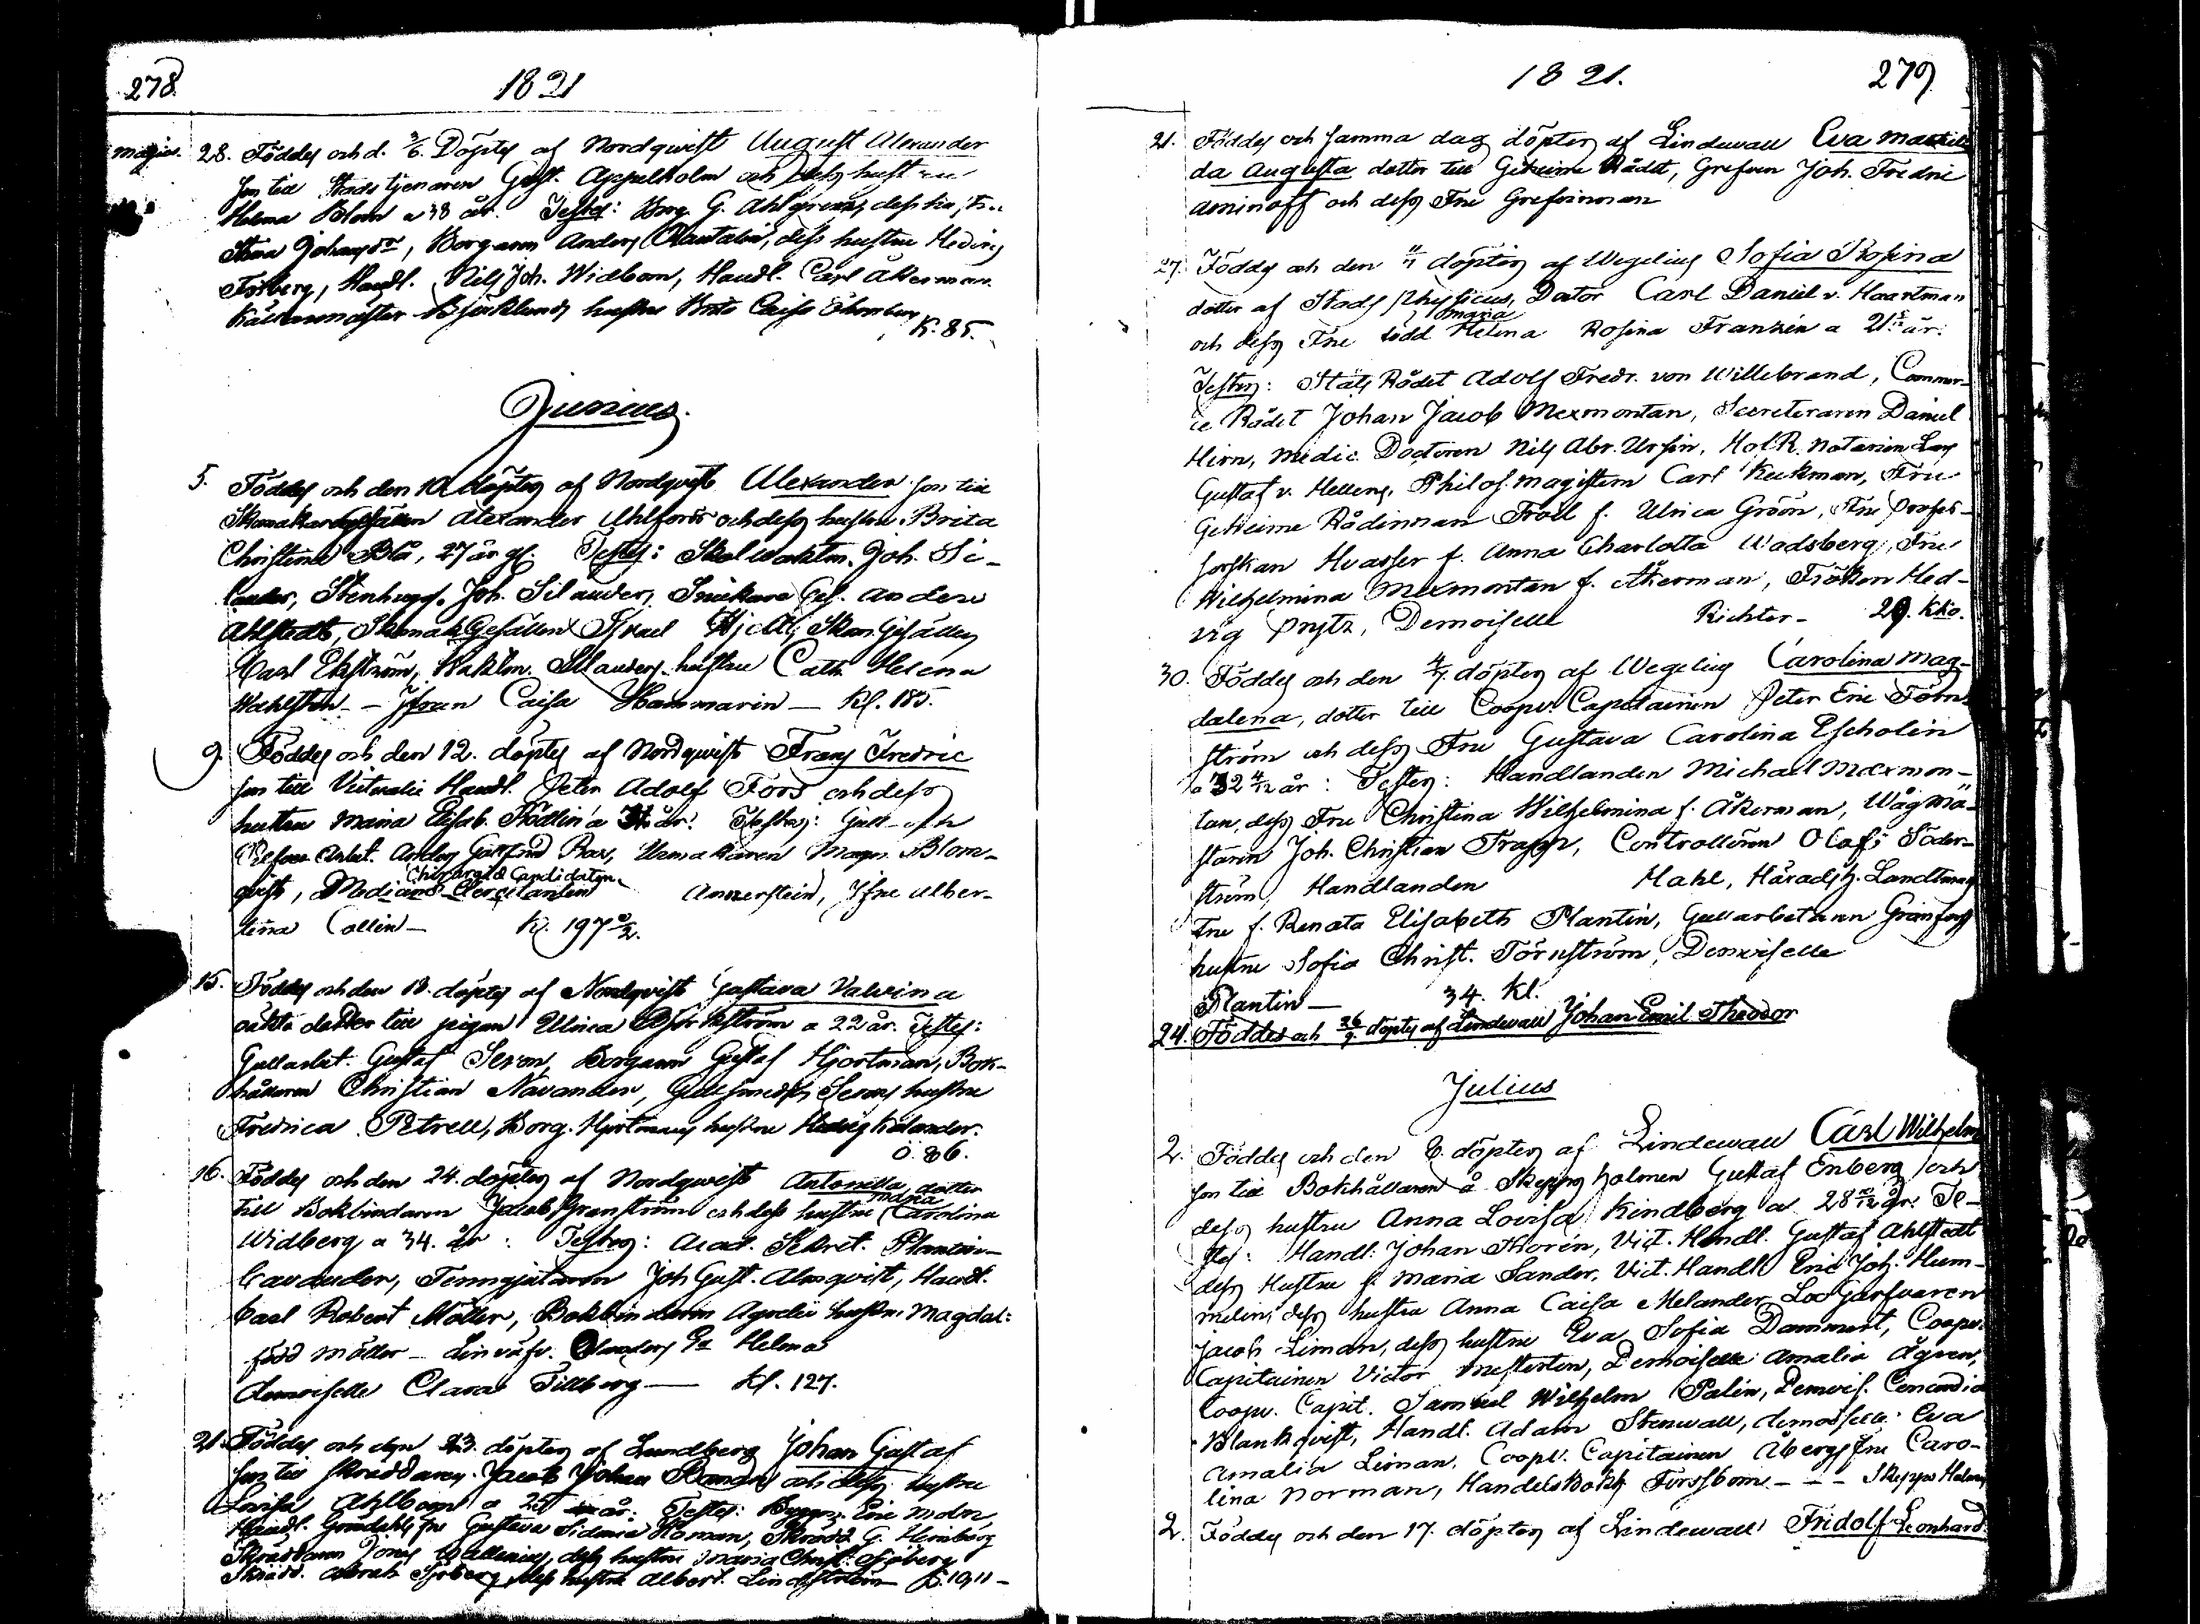 278.
1821
Majus. 28. Föddes och d. 3/6. Döptes af Nordqwist August Alexander
son till Stads tjenaren Gust. Appelholm och dess hust
Helena Blom a 38 år. Testes: Borg. G. Ahlgren, dess hu
Stina Johansdr, Borgaren Anders Rautalin, dess hustru Hedvig
Forberg, Handl. Nils Joh. Widbom, Handl. Carl Åkerman
Källaremästar Björklunds hustru Brita Caisa Öhomberg
K. 85.
Junius.
5. Föddes och den 10 döptes af Nordqwist Alexander son till
Skomakaregesällen Alexander Ahlfors och dess hustru Brita
Christina Blå, 27 år gl. Testes: Skolwaktm. Joh. Si-
lander, Stenhugg. Joh. Silander, Snickare Ges. Anders
Ahlstedt, Skomak Gesällen Israel Skom Gesällen
Carl Ekström, Waktm. Silanders hustru Cath. Helena
Wahlsten - Jfrun Caisa Hammarin - Kl. 185.
9. Föddes och den 12. döptes af Nordqwist Frans Fredric
son till Victualie Handl. Peter Adolf Fors och dess
hustru Maria Elisab. Hädlin a år. Testes: Gull- och
Silfver Arbet. Anders Gottfrid Rax, Urmakaren Magn. Blom-
qwist, Chirurgiæ Candidaten
Medicinæ Exercitanten Amnerstein, Jfru Alber-
tina Collin - K. 197 1/2.
15. Föddes och den 18. döptes af Nordqwist Gustava Valvina
oäkta dotter till pigan Ulrica Björkström a 22 år. Testes:
Gullarbet. Gustaf Seron, Borgaren Gustaf Hjortman, Bok-
hållaren Christian Navander, Gullsmeds Serons hustru
Fredrica Petrell, Borg. Hjortmans hustru Hedvig Kilander.
Ö. 86.
16. Föddes och den 24. döptes af Nordqwist Antonetta dotter
till Bokbindaren Jacob Granström och dess hustru Maria Carolina
Widberg a 34. år: Testes: Acad. Sekret. Plantin-
Cavander, Tenngjutaren Joh Gust. Almqvist, Handl.
Carl Robert Möller, Bokbindaren Agrelii hustru Magdal:
född Möller - Linväfv. Helena
demoiselle Clara Tillberg - Kl. 127.
21. Föddes och den 23. döptes af Lundberg Johan Gustaf
son till Skräddaren Jacob Johan och dess hustru
Lovisa Ahlbom a 25 år. Testes: Eric Molin,
Handl. Gröndahl, fru Gustava Sidonia Homan, Skrädd. G. Heinberg
Skräddaren Jonas Wallenius, dess hustru Maria Christ. Sjöberg
Skrädd. Abrah Sjöberg, dess hustru Albert. Lindström K. 10,11 -
1821.
279
21. Föddes och samma dag döptes af Lindewall Eva Mathil
da Augusta dotter till Geheime Rådet, Grefven Joh. Fredric
Aminoff och dess Fru Grefvinnan
27. Föddes och den 11/7 döptes af Wegelius Sofia Rosina
dotter af Stads Physicus, Doctor Carl Daniel v. Haartman
och dess Fru född Maria Helena Rosina Franzén a 21 5/12 år.
Testes: Stats Rådet Adolf Fredr. von Willebrand, Commer-
ce Rådet Johan Jacob Mexmontan, Secreteraren Daniel
Hirn, Medic. Doctoren Nils Abr. Ursin, Hof.R. Notarien Lars
Gustaf v. Hellens, Philos. Magistern Carl Keckman, Fru
Geheime Rådinnan Troil f. Ulrica Gröön, Fru Profes-
sorskan Hvasser f. Anna Charlotta Wadsberg, Fru
Wilhelmina Mexmontan f. Åkerman, Fröken Hed-
vig Prytz, Demoiselle Richter - 29. Klko.
30. Föddes och den 4/7 döptes af Wegelius Carolina Mag-
dalena, dotter till Coopv. Capitainen Peter Eric Törn-
ström och dess Fru Gustava Carolina Escholin
a 32 4/12 år: Testes: Handlanden Michael Mexmon-
tan, dess Fru Christina Wilhelmina f. Åkerman, Wågmä-
staren Joh. Christian Trapp, Controllören Olof Söder-
ström, Handlanden Hahl, Häradsh. Landtman
Fru f. Renata Elisabeth Plantin, Gullarbetaren Granfors
hustru Sofia Christ. Törnström, Demoiselle
Plantin - 34. Kl.
24. Föddes och 26/9. döptes af Lindewall Johan Emil Theodor
Julius
2. Föddes och den 6. döptes af Lindewall Carl Wilhelm
son till Bokhållaren å Skepps holmen Gustaf Enberg och
dess hustru Anna Lovisa Kindberg a 28 10/12 år. Te-
stes: Handl: Johan Thorén, Vict. Handl. Gustaf Ahlstedt
dess Hustru f. Maria Sander, Vict. Handl. Eric Joh. Hum-
melin, dess hustru Anna Caisa Melander, Logarfvaren
Jacob Liman, dess hustru Eva Sofia Dammert, Coopv.
Capitainen Victor Mesterton, Demoiselle Amalia Ågren,
Coopv. Capit. Samuel Wilhelm Palin, Demois. Concordia
Blankqvist, Handl. Adam Stenwall, demoiselle Eva
Amalia Liman. Coopv. Capitainen Åbergs fru Caro-
lina Norman, Handelsbokh. Forssbom - - - Skepps Holmen
2. Föddes och den 17. döptes af Lindewall Fridolf Leonhard